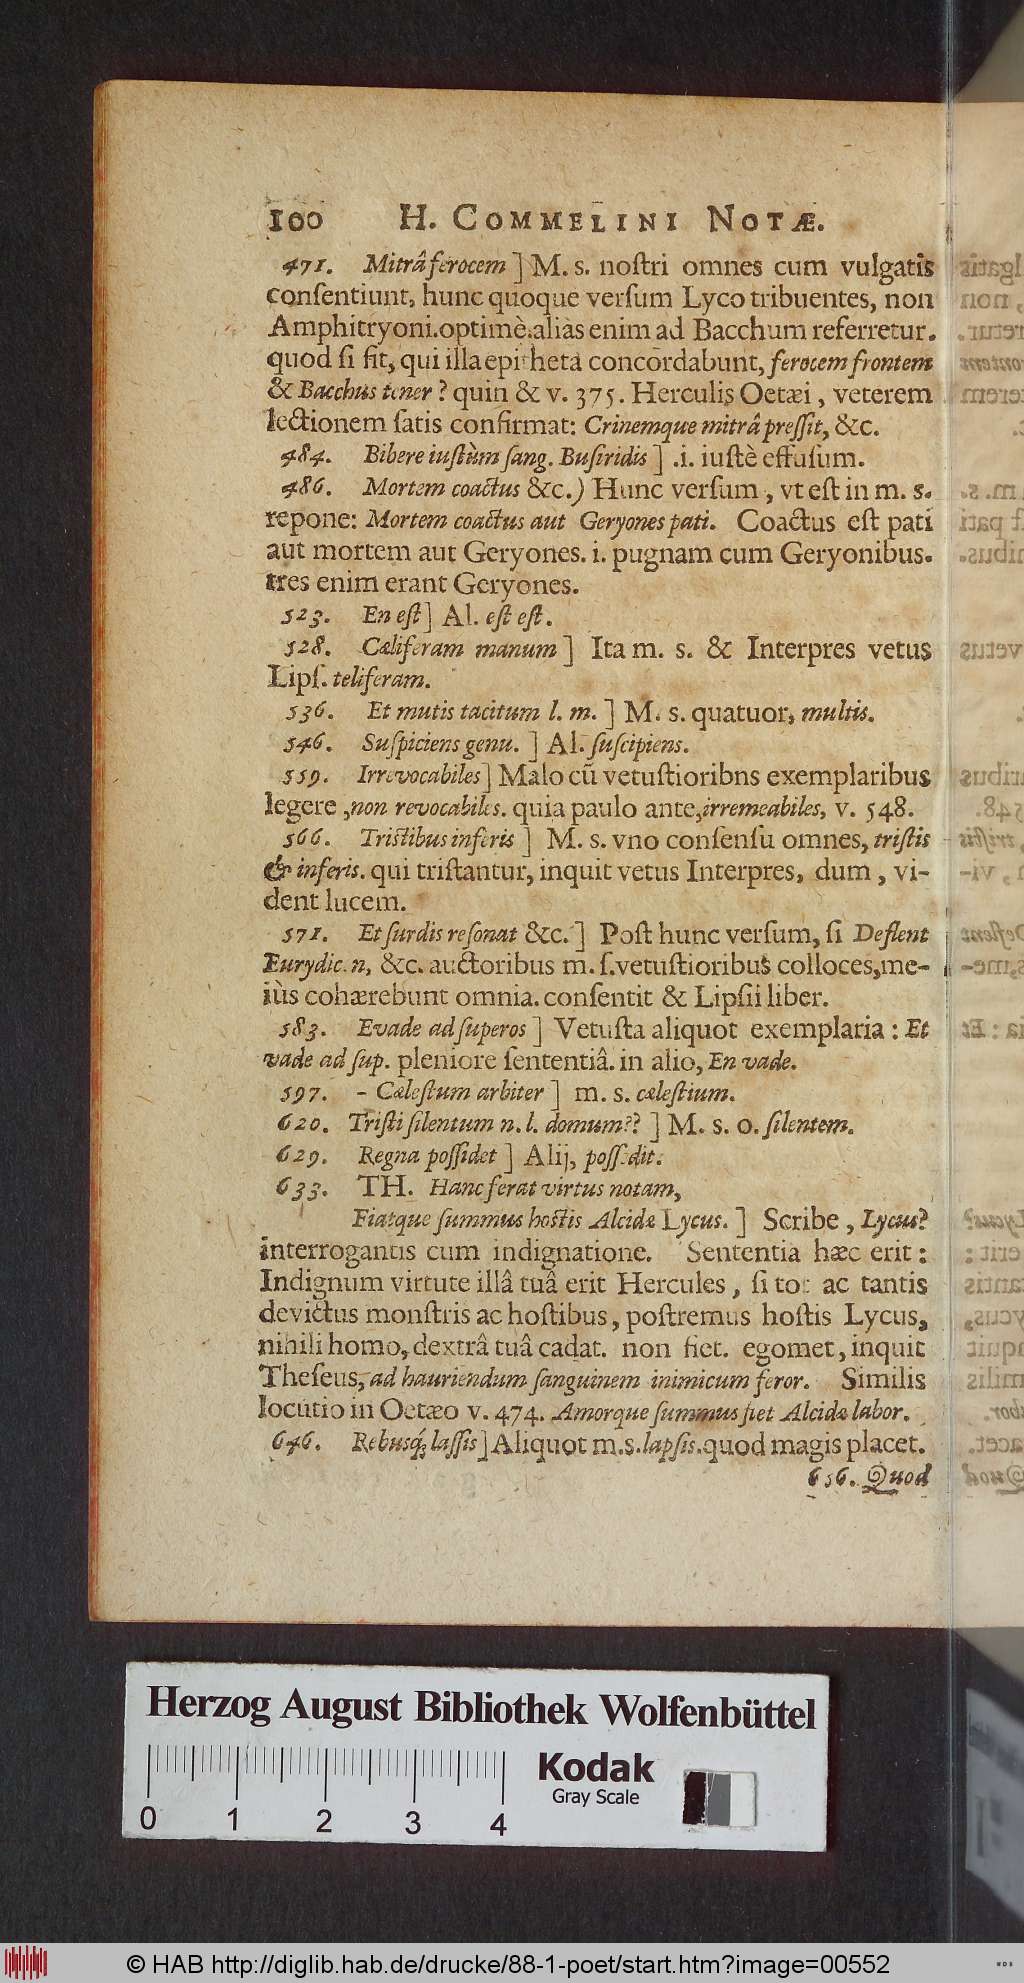 100 H. COMMELINI NOTÆ.
471. Mitrâ ferocem ] M. s. noſtri omnes cum vulgatis
conſentiunt, hunc quoque verſum Lyco tribuentes, non
Amphitryoni. optimè. aliàs enim ad Bacchum referretur.
quod ſi fit, qui illa epitheta concordabunt, ferocem frontem
& Bacchus tener? quin & v. 375. Herculis Oetæi, veterem
lectionem ſatis confirmat: Crinemque mitrâ preſſit, &c.
484. Bibere iuſtùm ſang. Buſiridis ] .i. iuſtè effuſum.
486. Mortem coactus &c.) Hunc verſum, vt eſt in m. s.
repone: Mortem coactus aut Geryones pati. Coactus eſt pati
aut mortem aut Geryones. i. pugnam cum Geryonibus.
tres enim erant Geryones.
523. En eſt ] Al. eſt eſt.
528. Cæliferam manum ] Ita m. s. & Interpres vetus
Lipſ. teliferam.
536. Et mutis tacitum l. m. ] M. s. quatuor, multis.
546. Suſpiciens genu. ] Al. ſuſcipiens.
559. Irrevocabiles ] Malo cū vetuſtioribns exemplaribus
legere, non revocabiles. quia paulo ante, irremeabiles, v. 548.
566. Triſtibus inferis ] M. s. vno conſenſu omnes, triſtis
& inferis. qui triſtantur, inquit vetus Interpres, dum, vi-
dent lucem.
571. Et ſurdis reſonat &c. ] Poſt hunc verſum, ſi Deflent
Eurydic.n, &c. auctoribus m. ſ. vetuſtioribus colloces, me-
iùs cohærebunt omnia. conſentit & Lipſii liber.
583. Evade ad ſuperos ] Vetuſta aliquot exemplaria: Et
vade ad ſup. pleniore ſententiâ. in alio, En vade.
597. - Cæleſtum arbiter ] m. s. cæleſtium.
620. Triſti ſilentum n. l. domum?? ] M. s. o. ſilentem.
629. Regna poſſidet ] Alij, poſſedit.
633. TH. Hanc ferat virtus notam,
Fiatque ſummus hoſtis Alcidæ Lycus. ] Scribe, Lycus?
interrogantis cum indignatione. Sententia hæc erit:
Indignum virtute illâ tuâ erit Hercules, ſi tot ac tantis
devictus monſtris ac hoſtibus, poſtremus hoſtis Lycus,
nihili homo, dextrâ tuâ cadat. non fiet. egomet, inquit
Theſeus, ad hauriendum ſanguinem inimicum feror. Similis
locutio in Oetæo v. 474. Amorque ſummus fiet Alcidæ labor.
646. Rebusq́; laſſis ] Aliquot m.s. lapſis. quod magis placet.
656. Quod
Herzog August Bibliothek Wolfenbüttel
Kodak
Gray Scale
0 1 2 3 4
© HAB http://diglib.hab.de/drucke/88-1-poet/start.htm?image=00552